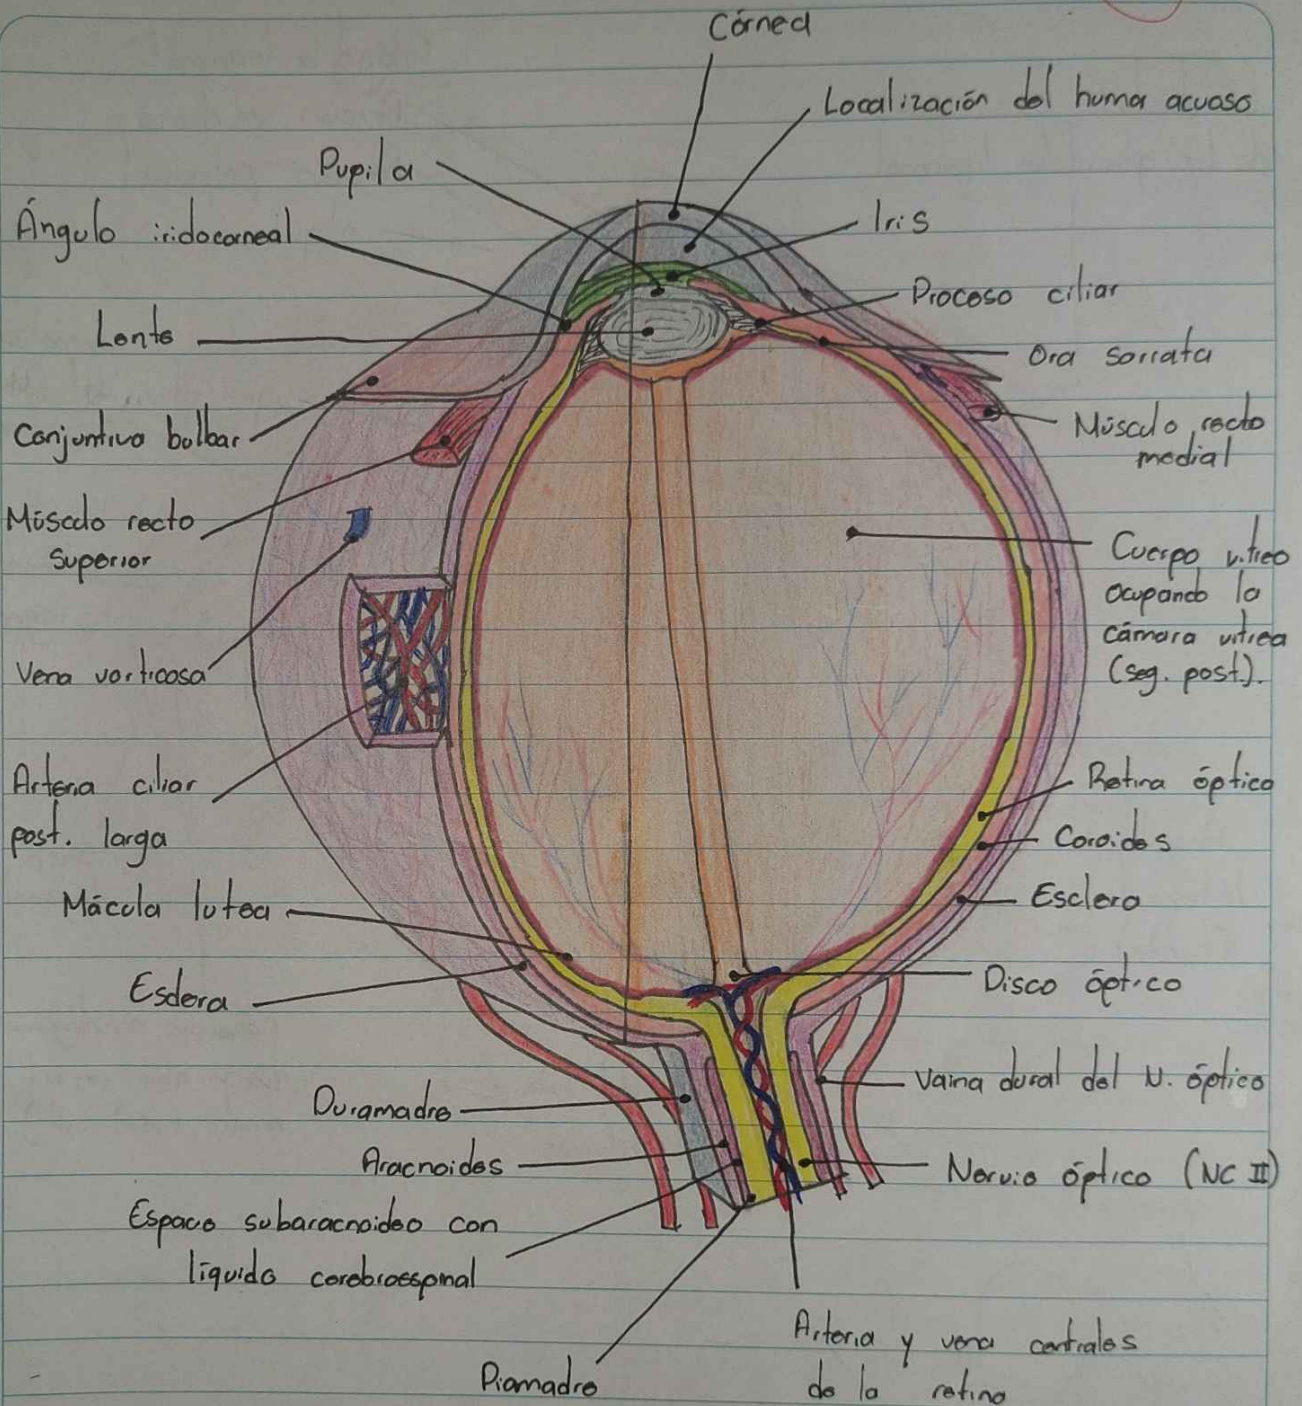 Córnea
Localización del huma acuoso
Pupila
Iris
Ángulo iridocorneal
Proceso ciliar
Lente
Ora serrata
Conjuntiva bulbar
Músculo recto
medial
Músculo recto
superior
Cuerpo vitreo
ocupando la
cámara vitrea
(seg. post).
Vena vorticosa
Arteria ciliar
post. larga
Retina óptica
Coroides
Esclera
Mácula lutea
Esclera
Disco óptico
Duramadre
Vaina dural del N. óptico
Aracnoides
Nervio óptico (NC II)
Espacio subaracnoideo con
líquido cerebroespinal
Arteria y vena centrales
de la retina
Piamadre